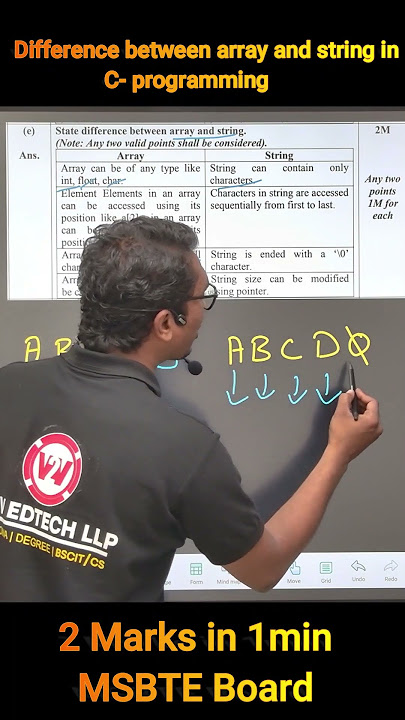 Difference between array and string in
C- programming
(e) State difference between array and string. 2M
(Note: Any two valid points shall be considered).
Ans. Array String
Array can be of any type like String can contain only
int, float, char. characters.
Element Elements in an array Characters in string are accessed
can be accessed using its sequentially from first to last.
position like a[2] in an array
can be its
Any two
points
1M for
each
String is ended with a '\0'
character.
String size can be modified
using pointer.
A B
A B C D
V2V
EDTECH LLP
DEGREE | BSCIT/CS
Form
Move
Grid
Undo
Redo
2 Marks in 1min
MSBTE Board